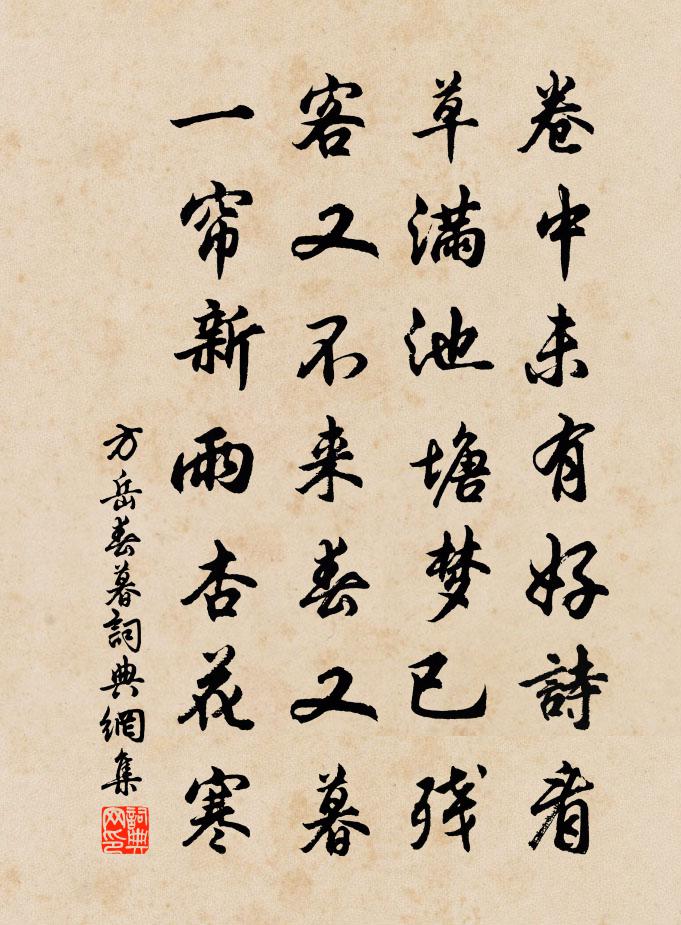 卷中未有好詩看
草满池塘梦已残
客又不来春又暮
一帘新雨杏花寒
方岳春暮詞典網集
詞典网印